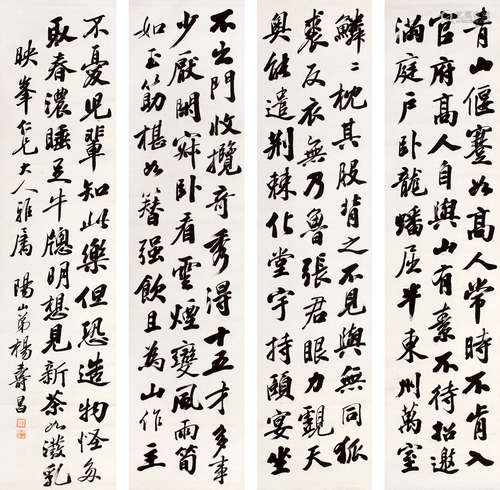 青山偃蹇如高人常時不肯入
官府高人自與山有素不待招邀
滿庭戶臥龍蟠屈半東州萬室
鱗〻枕其股背之不見與無同狐
裘反衣無乃魯張君眼力覷天
奧能遣荆棘化堂宇持頤宴坐
不出門收攬奇秀得十五才多事
少厭閒寂臥看雲煙變風雨筍
如玉筯椹如簪強飲且為山作主
不憂兒輩知此樂但恐造物怪多
取春濃睡足午牕明想見新茶如潑乳
映峯仁兄大人雅屬 陽山弟楊壽昌